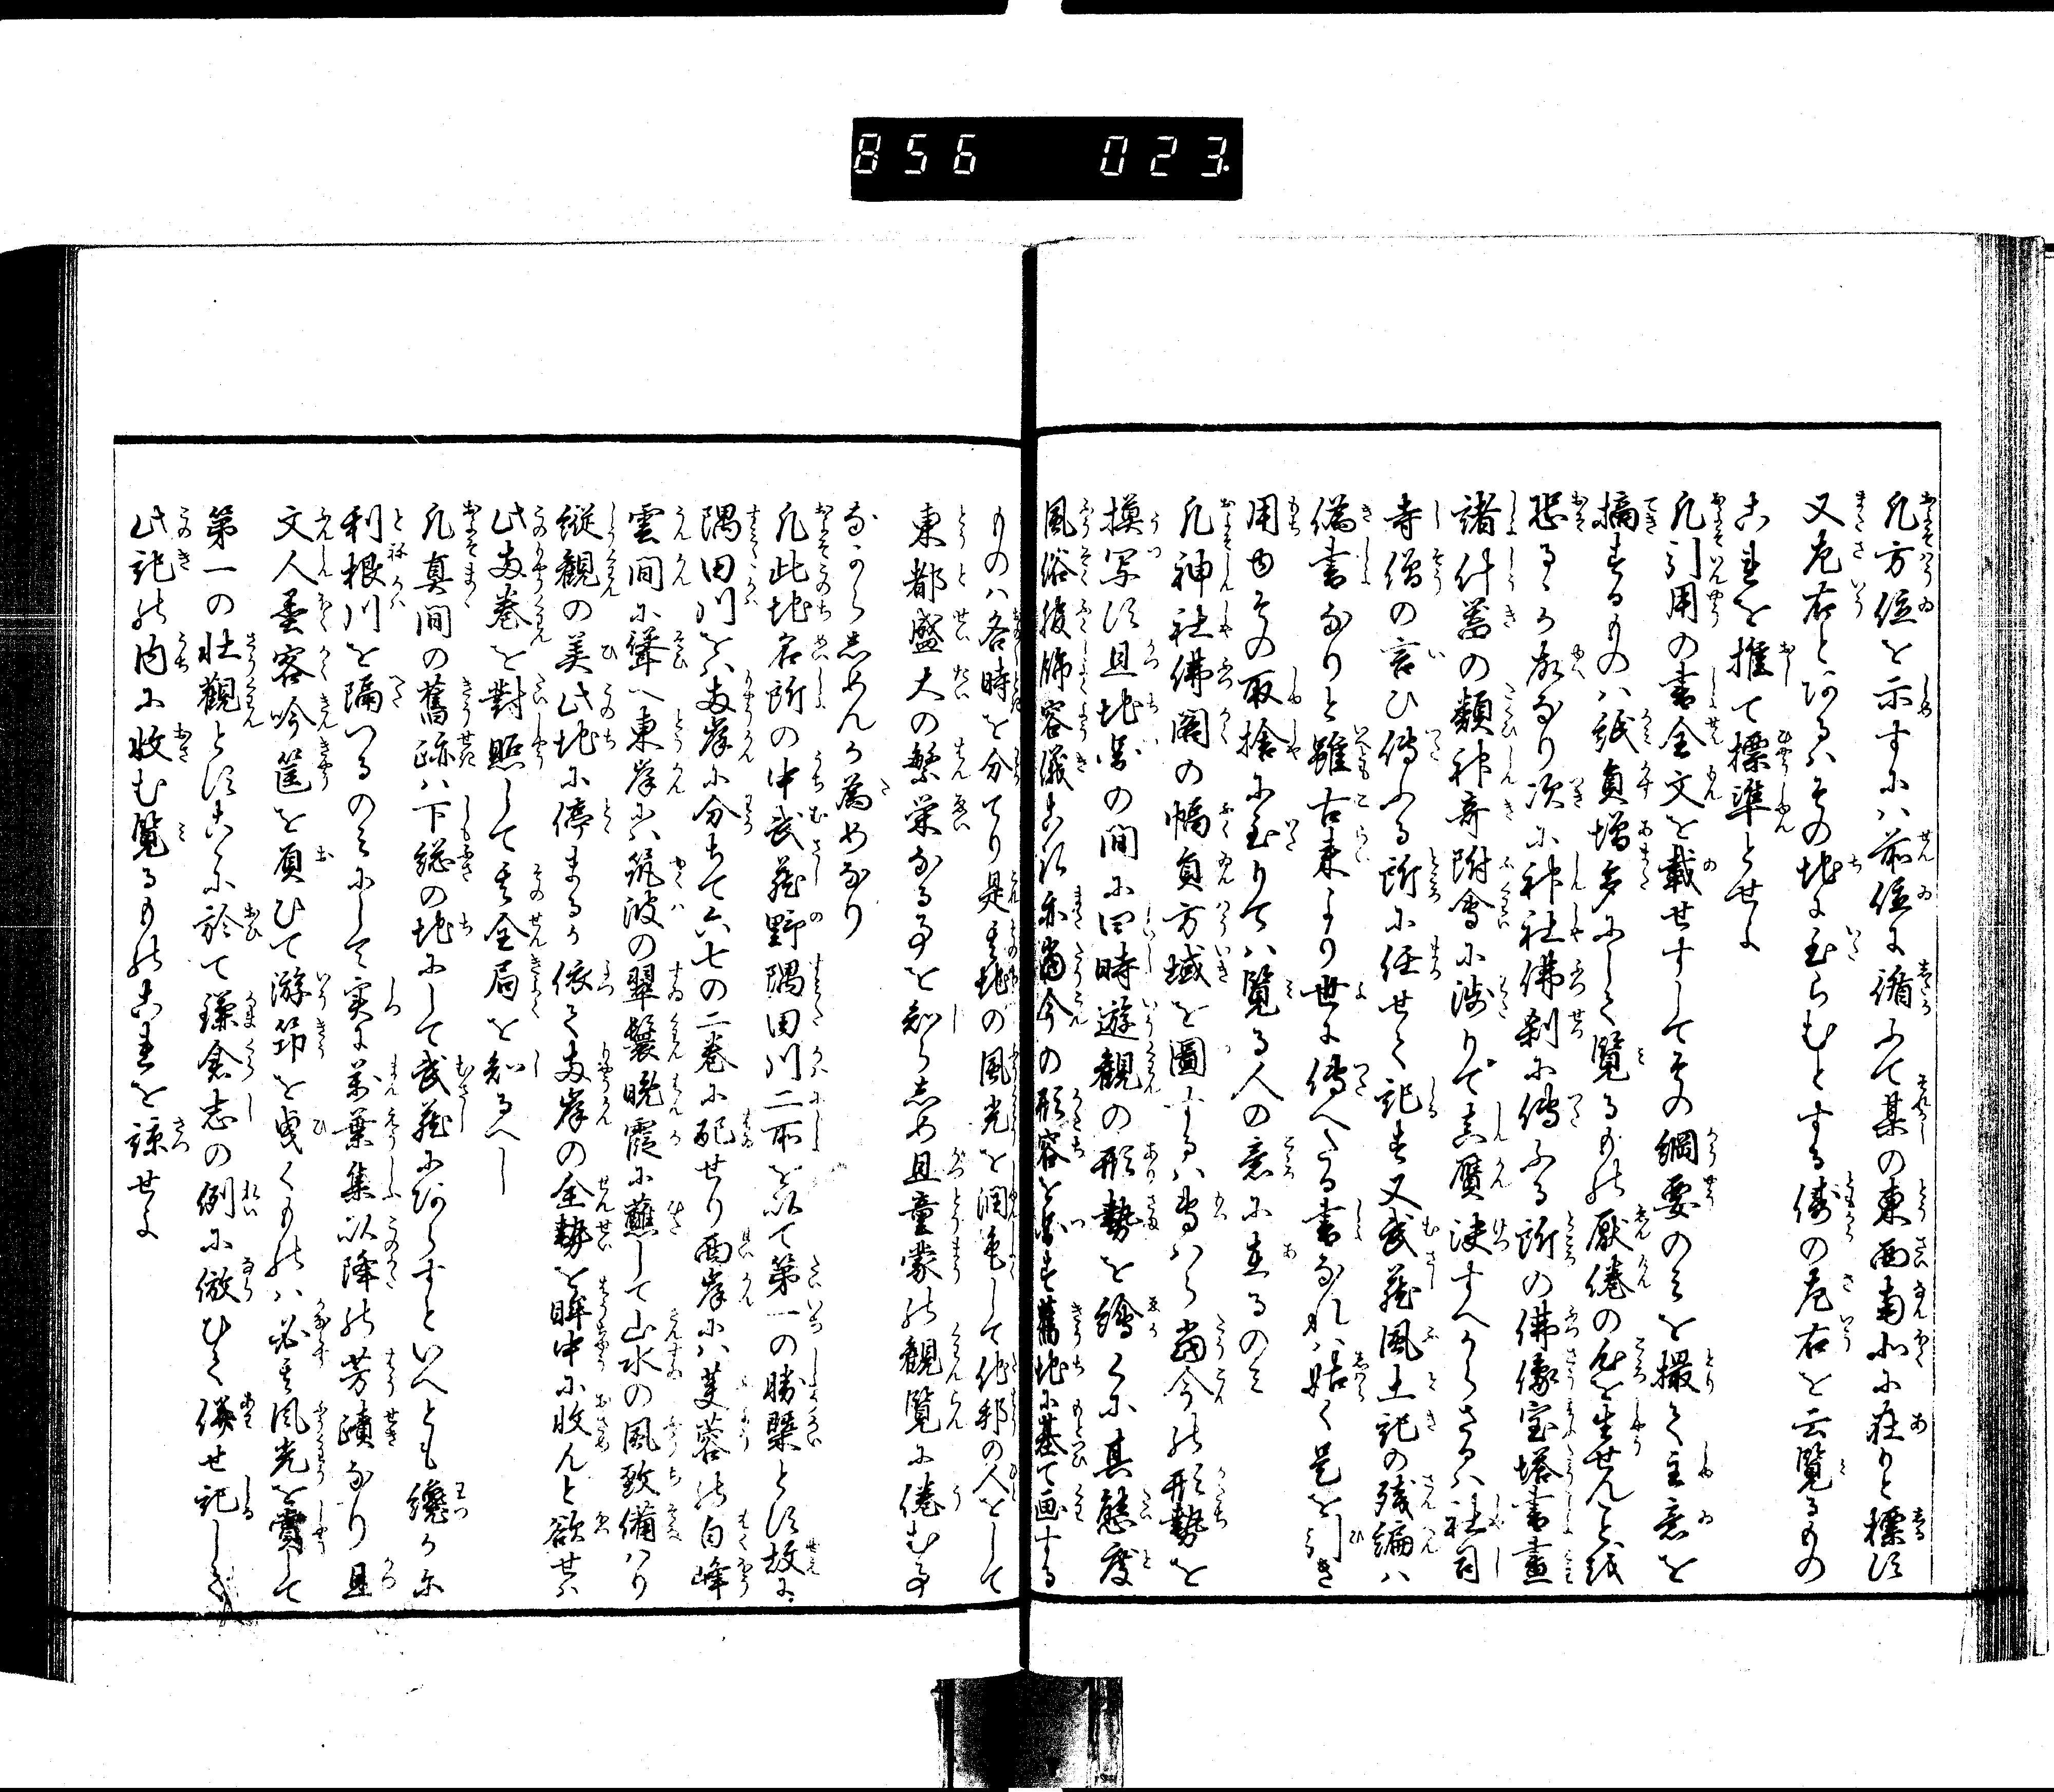 856 023
凡方位を示すにハ前位に循ふて某の東西南北に在りと標す
又左右とあるハその地に至らむとする街の左右を云覧るもの
これを推て標準とせよ
凡引用の書全文を載せすしてその綱要のミを撮て主意を
摘するものハ紙員増多にして覧るものゝ厭倦の心を生せんことを
恐るゝか故なり次に神社佛刹に傳ふる所の佛像宝塔書畫
諸什器の類神奇附會に渉りて真贋决すへからさるハ社司
寺僧の言ひ傳ふる所に任せて記す又武蔵風土記の残編ハ
偽書なりと雖古来より世に傳へたる書なれハ姑く是を引き
用ゆその取捨に至りてハ覧る人の意に在るのミ
凡神社佛閣の幅員方域を圖するハ専ら當今の形勢を
摸写す且地景の間に四時遊観の形勢を繪くに其態度
風俗服飾容儀これ亦當今の形容を

ものハ各時を分てり是其地の風光を潤色して他邦の人をして
東都盛大の繁栄なる事を知らしめ且童蒙の観覧に倦む事
なからしめんか為めなり
凡此地名所の中武蔵野隅田川二所を以て第一の勝槩とす故に
隅田川をハ両岸に分ちて六七の二巻に配せり西岸にハ芙蓉の白峰
雲間に聳へ東岸にハ筑波の翠鬟晩霞に蘸して山水の風致備ハり
縦観の美此地に停まる依て両岸の全勢を眸中に收んと欲せハ
此両巻を對照して其全局を知るへし
凡真間の舊跡ハ下総の地にして武蔵にあらすといへとも纔に
利根川を隔つるのミにして実に萬葉集以降の芳躅なり且
文人墨客吟筐を負ひて游筇を曳くものハ必其風光を賞して
第一の壮觀とすこゝに於て鎌倉志の例に倣ひて併せ記して
此記の内に收む覧るものこれを諒せよ